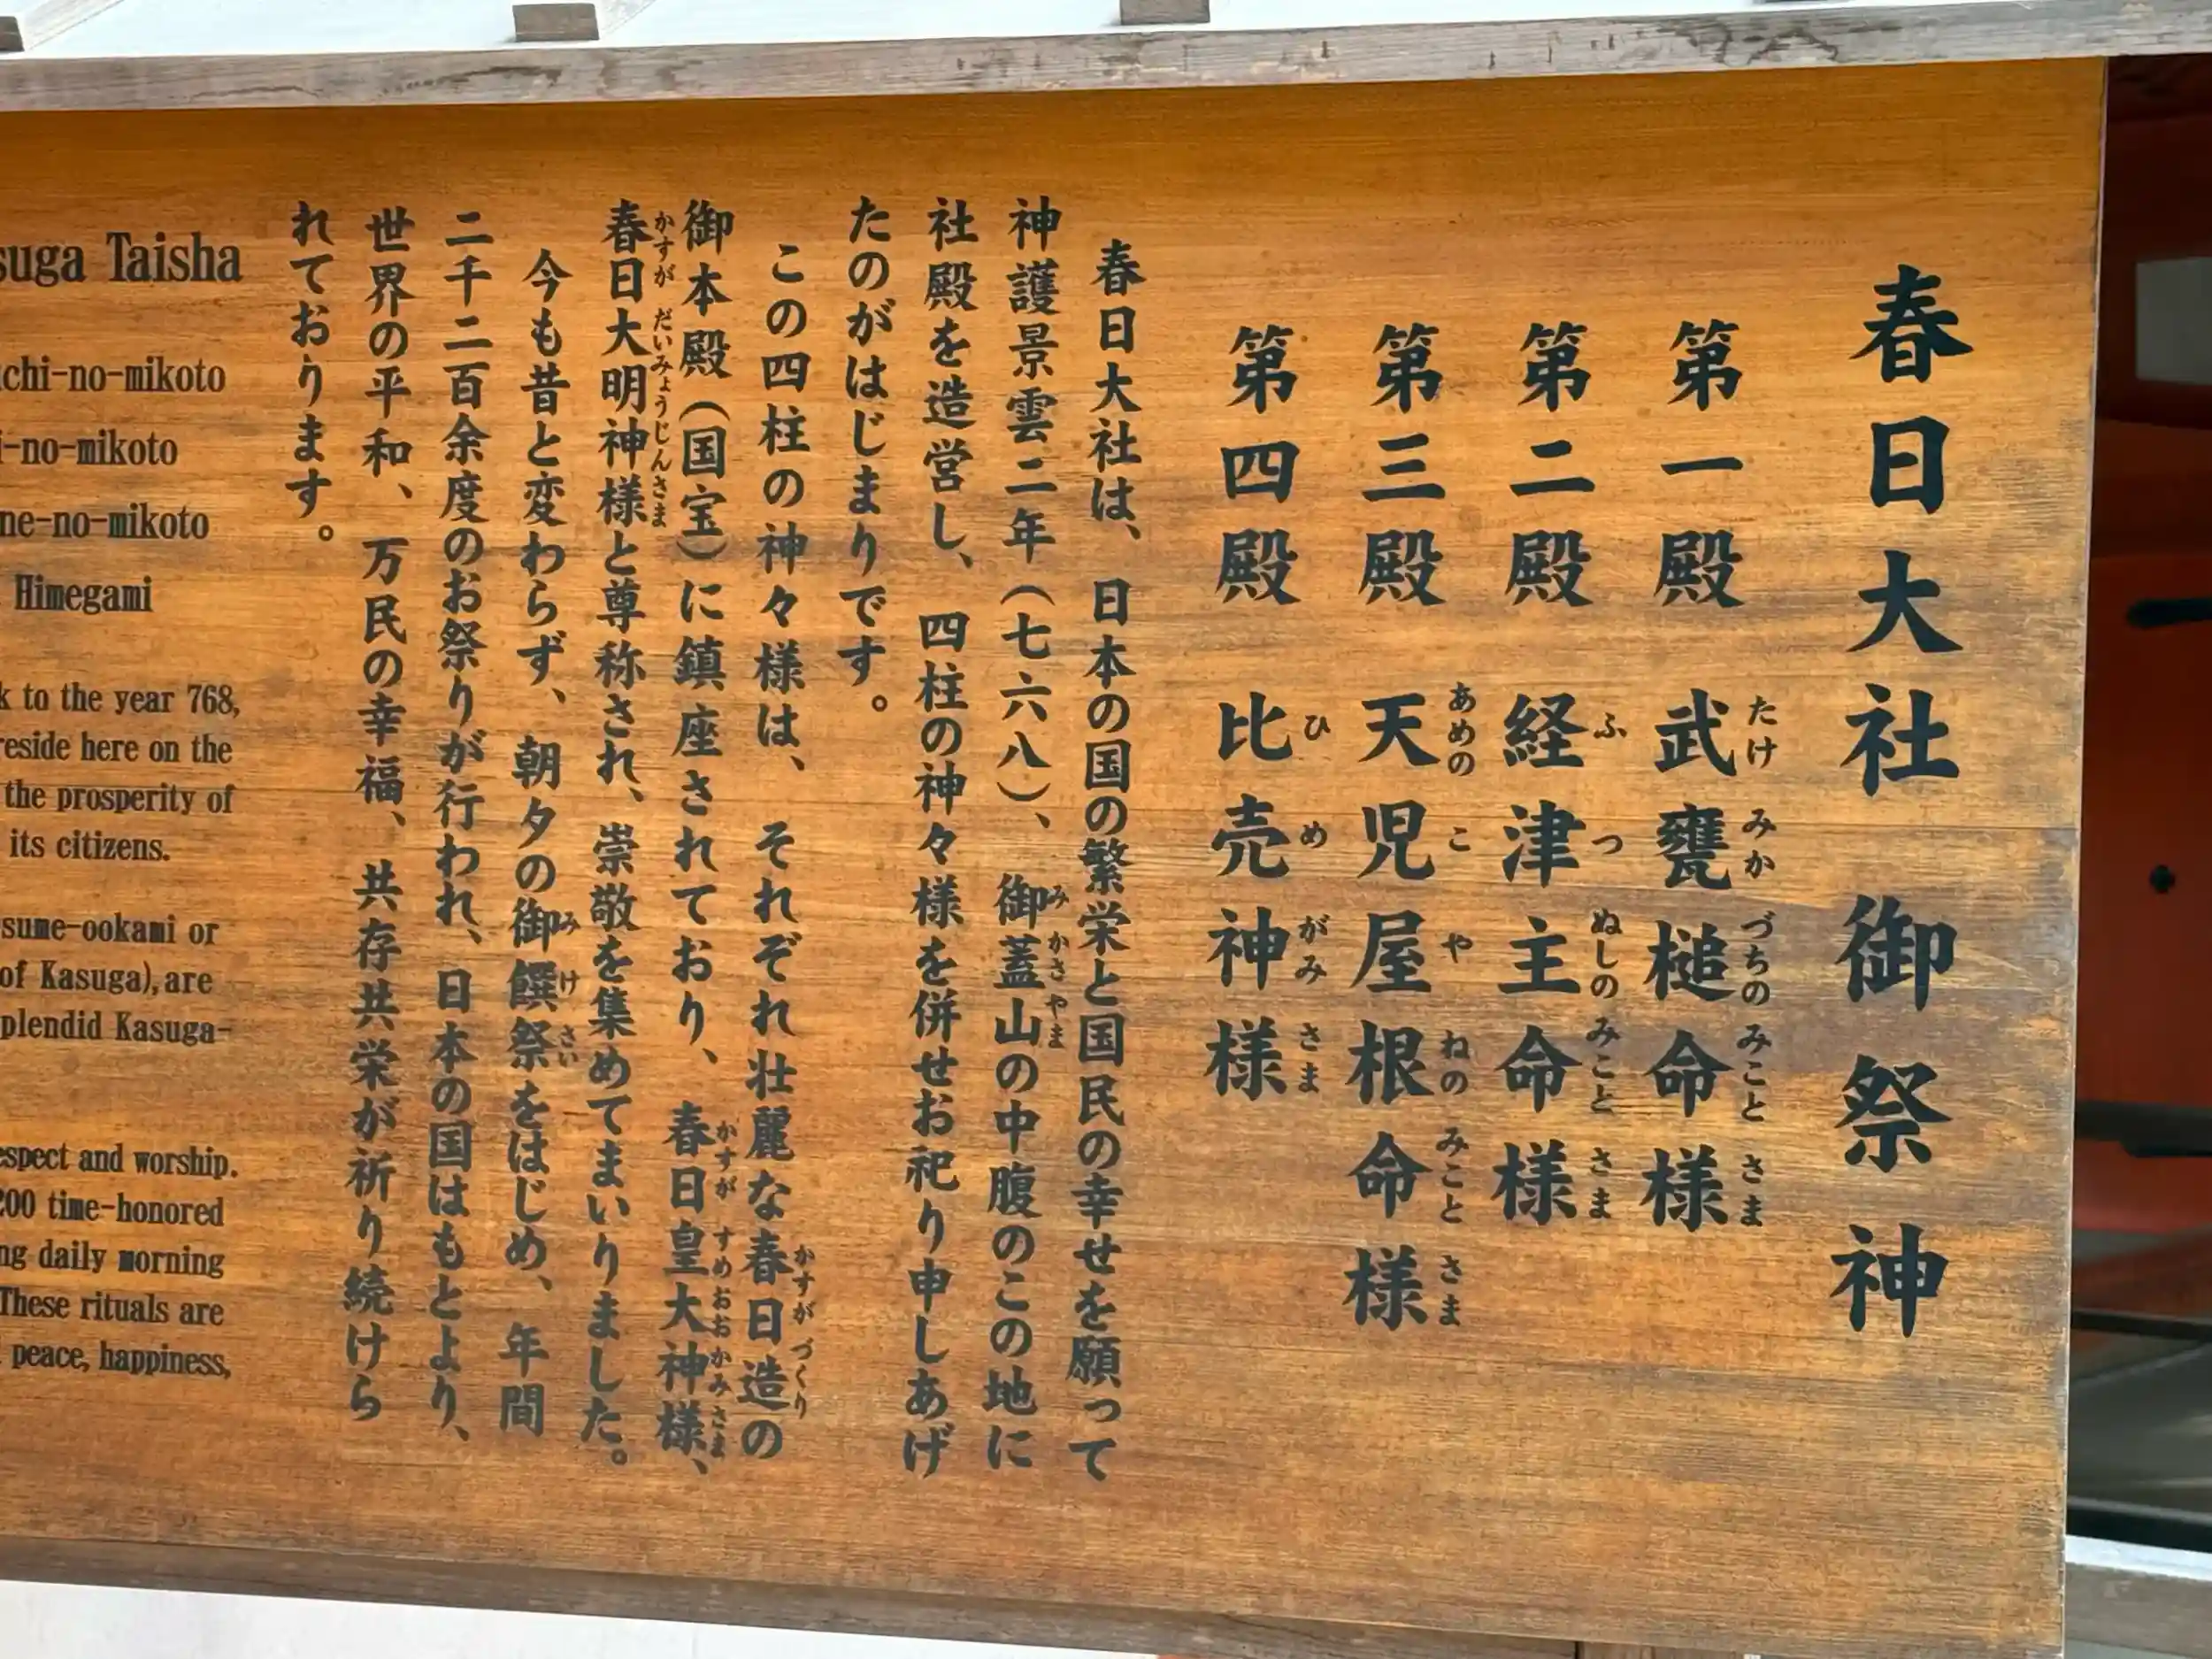 春日大社 御祭神
第一殿 武甕槌命様
たけ みか づちの みこと さま
第二殿 経津主命様
ふ つ ぬしの みこと さま
第三殿 天児屋根命様
あめの こ や ねの みこと さま
第四殿 比売神様
ひ め がみ さま
春日大社は、日本の国の繁栄と国民の幸せを願って
神護景雲二年(七六八)、御蓋山の中腹のこの地に
み かさ やま
社殿を造営し、四柱の神々様を併せお祀り申しあげ
たのがはじまりです。
この四柱の神々様は、それぞれ壮麗な春日造の
かすが づくり
御本殿(国宝)に鎮座されており、春日皇大神様、
かすが すめ おお かみ さま
春日大明神様と尊称され、崇敬を集めてまいりました。
かすが だいみょうじんさま
今も昔と変わらず、朝夕の御饌祭をはじめ、年間
み け さい
二千二百余度のお祭りが行われ、日本の国はもとより、
世界の平和、万民の幸福、共存共栄が祈り続けら
れております。
suga Taisha
chi-no-mikoto
i-no-mikoto
ne-no-mikoto
Himegami
k to the year 768,
reside here on the
the prosperity of
its citizens.
sume-ookami or
of Kasuga), are
plendid Kasuga-
espect and worship.
200 time-honored
ng daily morning
These rituals are
peace, happiness,